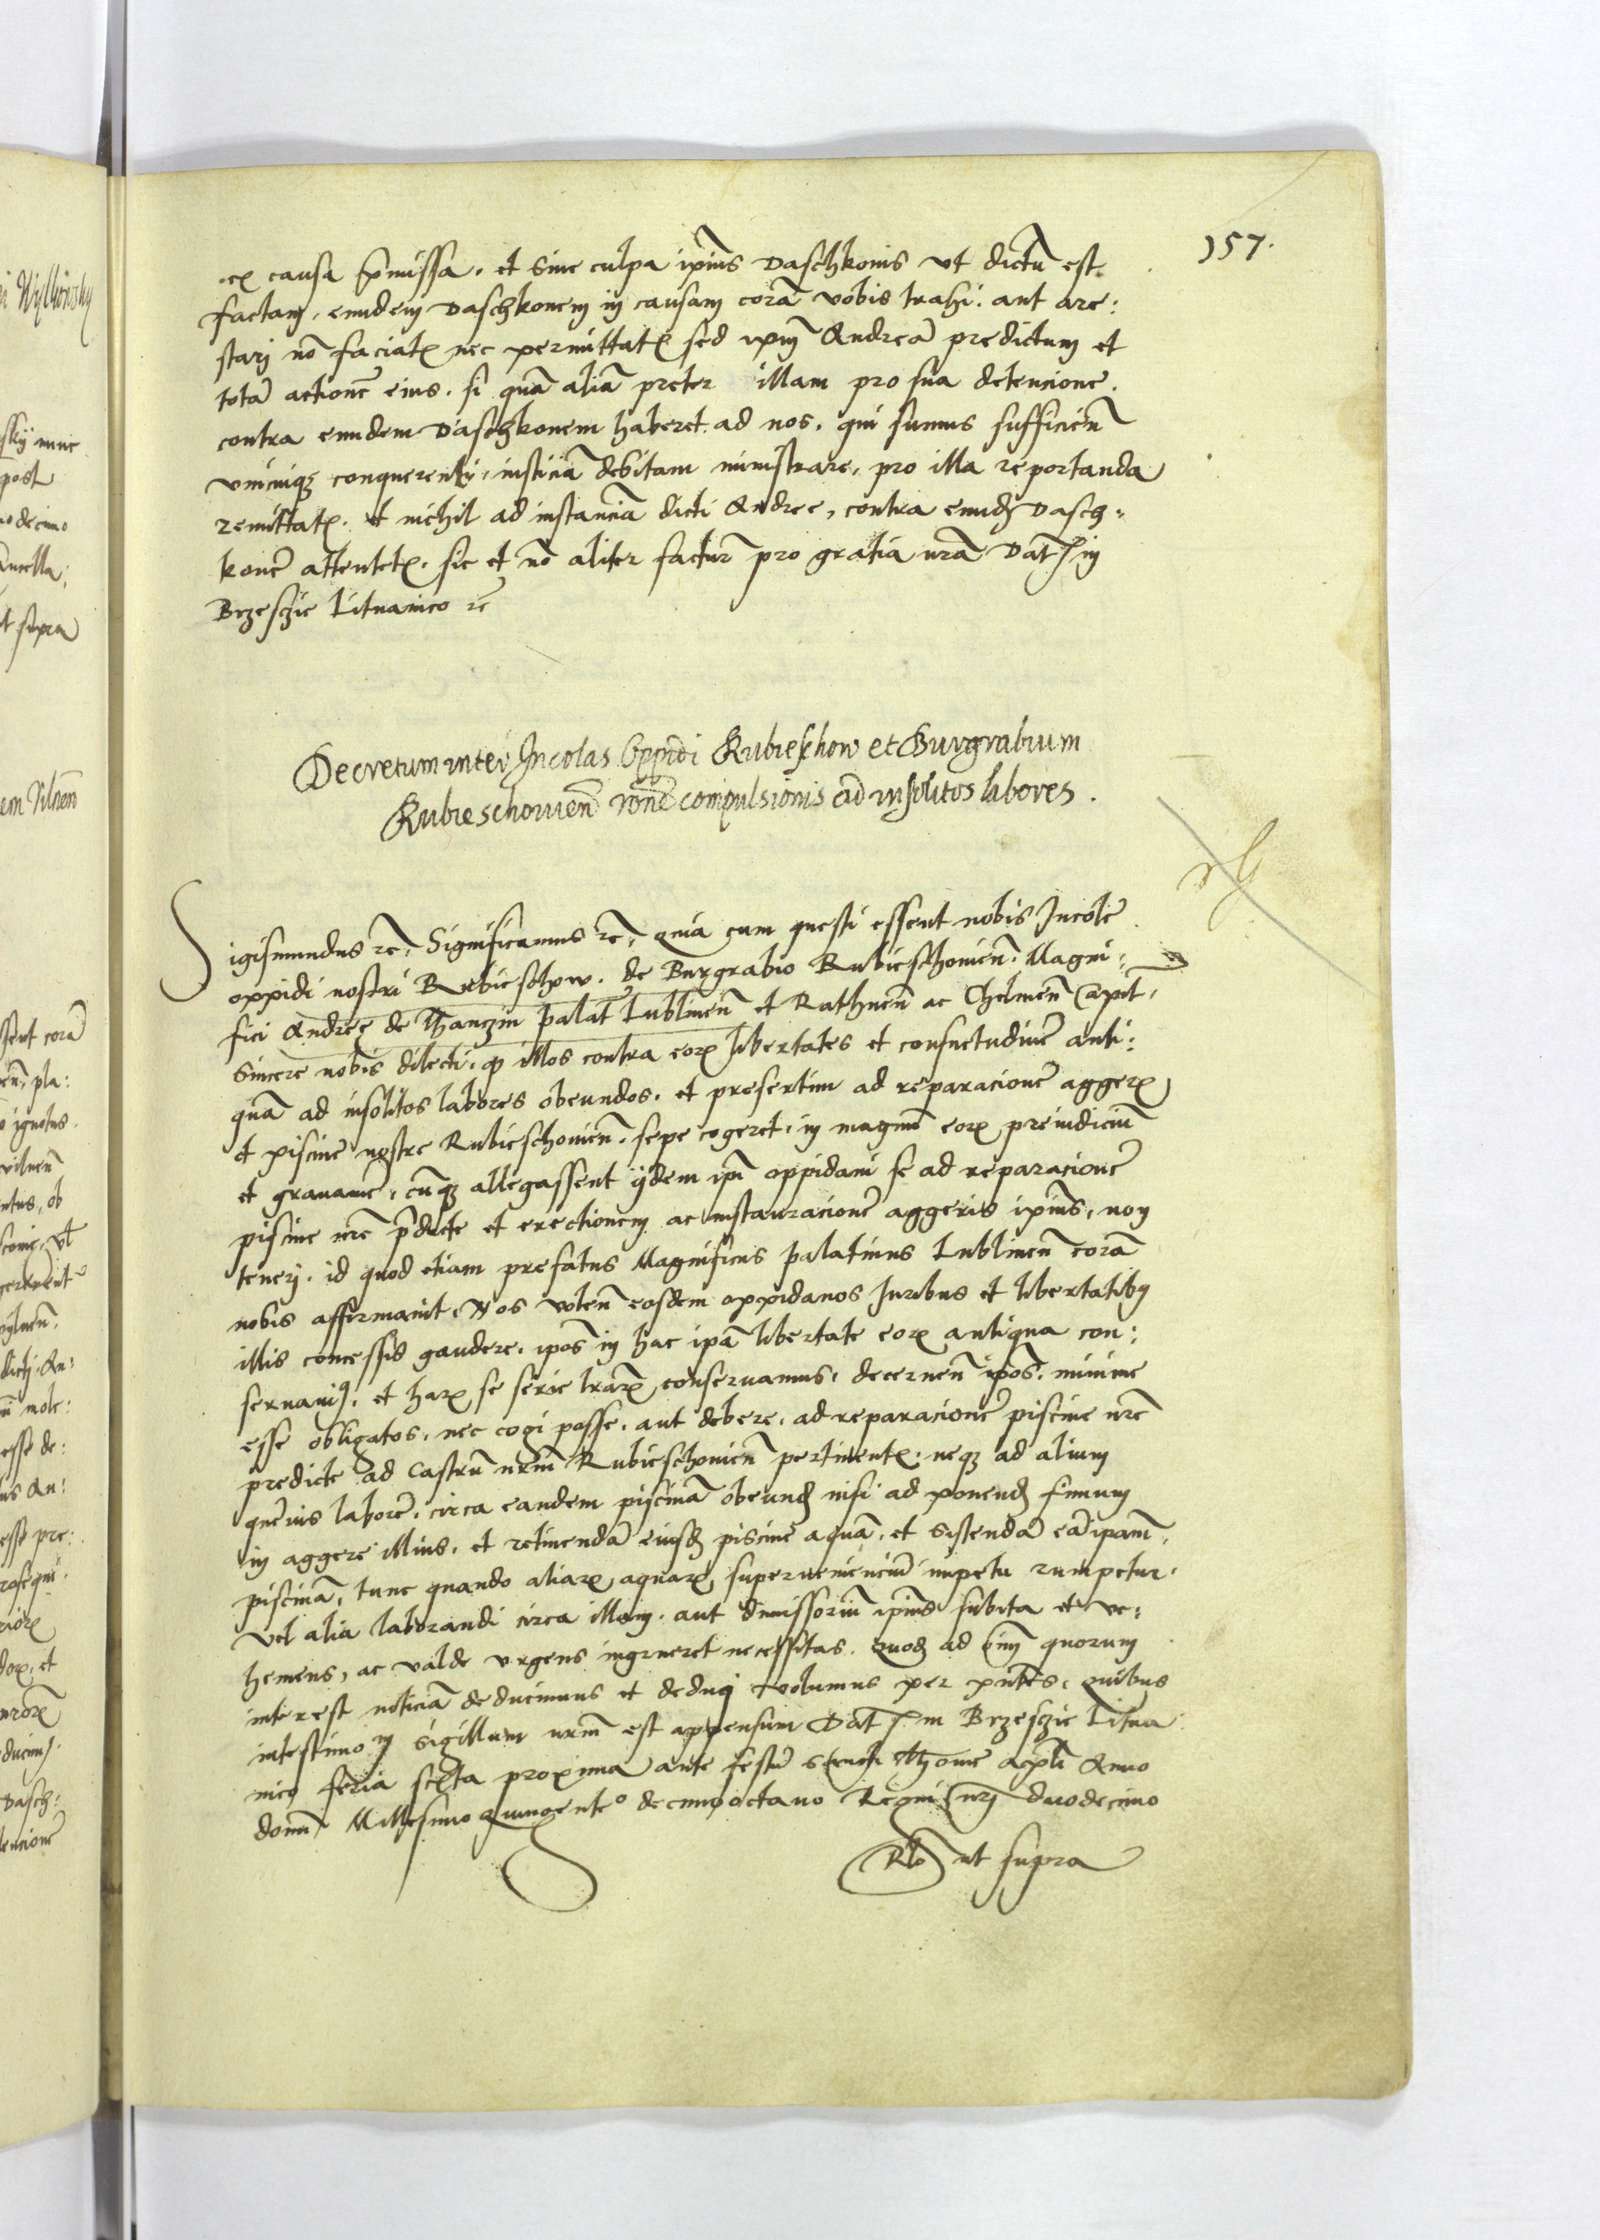 157.
ex causa p̃missa. et sine culpa ipius Daschkonis ut dictũ est.
factam, eundem Daschkonem in causam corã vobis trahi. aut are:
stari nõ faciatis nec permittatis sed ipm̃ Andreã predictum et
totã actionẽ eius. si quã aliã preter illam pro sua detencione.
contra eundem Daschkonem haberet ad nos. qui sumus sufficien̄
unicuiqȝ conquerenti, insticiã debitam ministrare, pro illa reportanda
remittatis. et nichil ad instanciã dicti Andree, contra eund̃ Dasch=
konẽ attentetis. sic et nõ aliter factur̃ pro gratia nr̃a Dat̃ in
Brzesczie Lituanico rc̃
Decretum inter Incolas Oppidi Rubieschow et Burgrabium
Rubieschouien̄ rõne compulsionis ad insolitos labores.
Sigismundus rc̃, Significamus rc̃, quia cum questi essent nobis Incole
oppidi nostri Rubieschow. de Burgrabio Rubieschouien̄. Magni:
fici Andree de Thanczin palat̃ Lublinen̄ et Rathnen̄ ac Chelmen̄ Capit.
Sincere nobis dilecti. ꝙ illos contra eoꝝ libertates et consuetudinẽ anti:
quã ad insolitos labores obeundos. et presertim ad reparacionẽ aggeꝝ
et piscine nostre Rubieschouien̄. sepe cogeret. in magnũ eoꝝ preiudiciũ
et grauamẽ, cũqȝ allegassent ijdem ipĩ oppidani se ad reparacionẽ
piscine nr̃e p̃dicte et erectionem ac instauracionẽ aggeris ipius, non
teneri. id quod etiam prefatus Magnificus palatinus Lublinen̄ corã
nobis affirmauit, Nos volen̄ eosdem oppidanos Iuribus et libertatibus
illis concessis gaudere. ipos in hac ipã libertate eoꝝ antiqua con:
seruauimꝰ, et haꝝ se serie lr̃aꝝ conseruamus, decernen̄ ipos. minime
esse obligatos. nec cogi posse. aut debere. ad reparacionẽ piscine nr̃e
predicte ad Castrũ nr̃um Rubieschouien̄ pertinentis. neqȝ ad alium
quẽuis laborẽ. circa eandem piscinã obeund̃ nisi ad ponend̃ fimum
in aggere illius. et retinendã eiusd̃ piscine aquã. et sistendã eã ipam̃
piscinã, tunc quando aliaꝝ aquaꝝ superuenienciũ impetu rumpetur.
vel alia laborandi circa illam. aut dimissoriũ ipius subita et ve:
hemens, ac valde urgens ingrueret necessitas. Quod ad õim̃ quorum
interest noticiã deducimus et deduci volumus per pñtes. Quibus
in testimoniũ Sigillum nr̃um est appensum Dat̃ in Brzesczie Litua
nico feria sexta proxima ante festũ Sancti Thome apl̃i Anno
domini Millesimo quingentº decimooctauo Regni nr̃i duodecimo
Rlõ ut supra